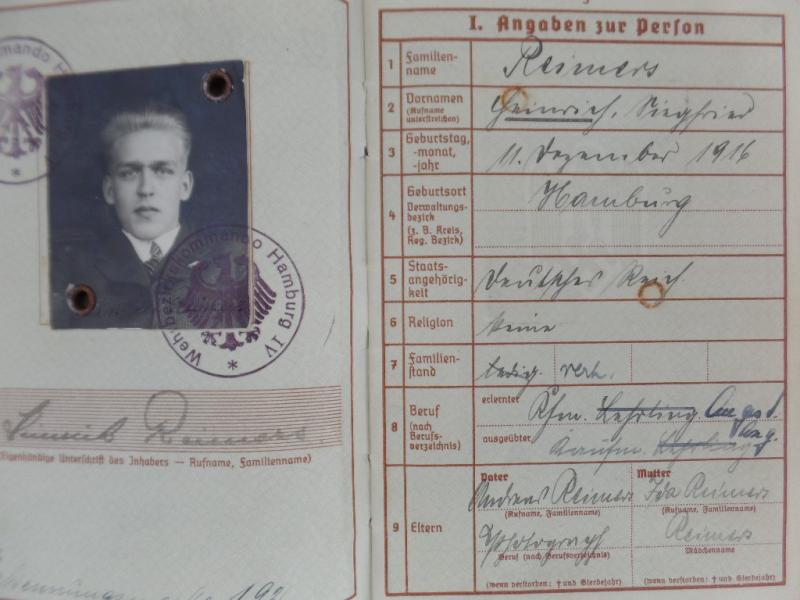 Wehrbezirkskommando Hamburg IV
*
Heinrich Reimers
(Eigenhändige Unterschrift des Inhabers — Rufname, Familienname)
I. Angaben zur Person
1 Familien-
name
Reimers
2 Vornamen
(Rufname
unterstreichen)
Heinrich, Siegfried
3 Geburtstag,
-monat,
-jahr
11. Dezember 1916
4 Geburtsort
Verwaltungs-
bezirk
(z. B. Kreis,
Reg. Bezirk)
Hamburg
5 Staats-
angehörig-
keit
Deutsches Reich
6 Religion
keine
7 Familien-
stand
ledig. verh.
8 Beruf
(nach
Berufs-
verzeichnis)
erlernter
Kfm. Lehrling Angest.
ausgeübter
Kaufm. Lehrling Ang.
9 Eltern
Vater
Andreas Reimers
(Rufname, Familienname)
Photograph
Beruf (nach Berufsverzeichnis)
(wenn verstorben: † und Sterbejahr)
Mutter
Ida Reimers
(Rufname, Familienname)
Reimers
Mädchenname
(wenn verstorben: † und Sterbejahr)